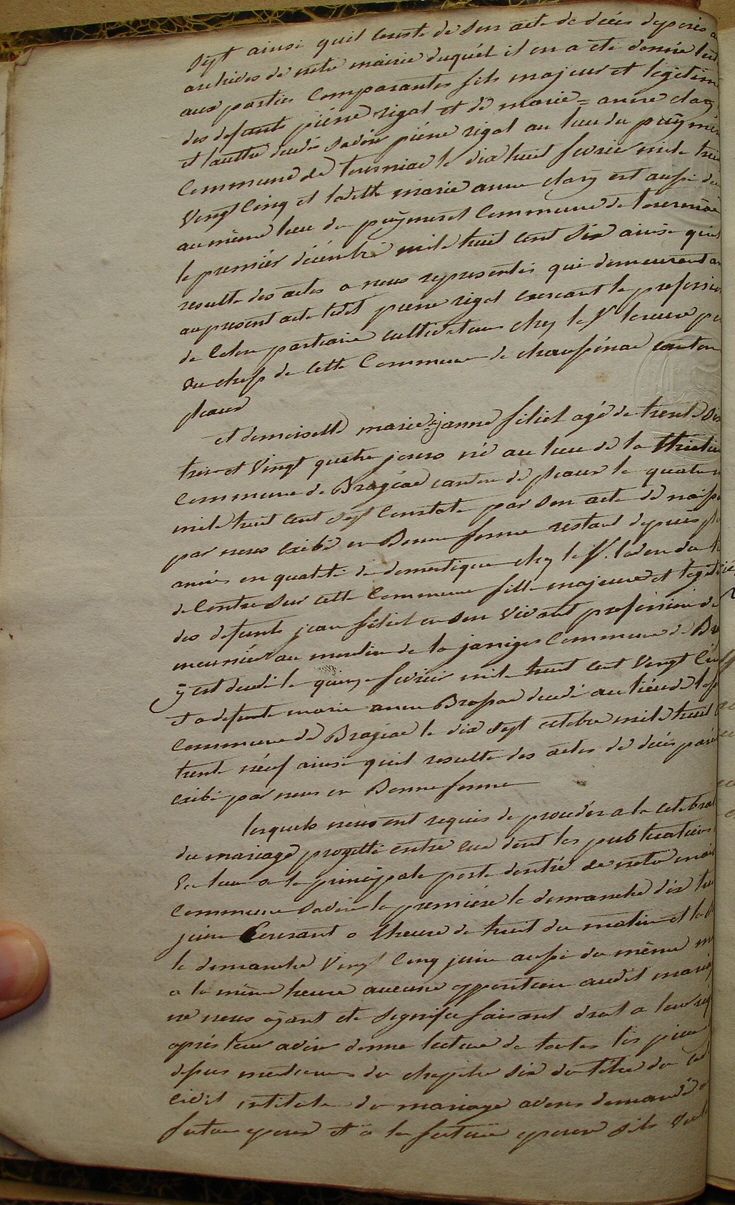 sept ainsi quil conste de son acte de décès déposés a
archives de notre mairie duquel il en a ete donné lect
aux parties Comparantes fils majeur et légitime
des défunts piérre rigal et de marie = anne clary
et l'autre décédés savoir piérre rigal au lieu du puymer
Commune de tourniac le dix huit février mile huit
Vingt Cinq et ladite marie anne clary est aussi dé
au même lieu du Commune de tourniac
le premier décembre mile huit cent dix ainsi quil
resulte des actes a nous représentés qui demeureront an
au présent acte ledit pierre rigal exercant la profession
de Colon partiaire cultivateur chez le Sr
au chef de cette Commune de chaussenac canton
pleaux
et demoiselle marie = janne filiol agé de trente deux
trois et Vingt quatre jours né au lieu de la
Commune de Brageac canton de pleaux le quatre
mile huit cent sept Constaté par son acte de naiss
par nous exibé en Bonne forme restant depuis
années en qualité de domestique chez le Sr.
de Contre sur cette Commune fille majeure et légit
des défunts jean filiol en son Vivant profession de
meunier au moulin de la janiges Commune de Br
y est décédé le quinze février mile huit cent Vingt Cin
et a défunte marie anne Brossac décédé au lieu de
Commune de Brageac le dix sept octobre mile huit
trente neuf ainsi quil resulte des actes de décès
exibé par nous en Bonne forme
lesquels nous ont requis de procéder a la célébrat
du mariage progetté entre eux dont les publications
En lieu a la principale porte dentré de notre mai
Commune savoir la première le demanche dix hu
juin Courant a lheure de huit du matin et la
le demanche Vingt Cinq juin aussi du même
a la même heure aucune opposition audit mariage
ne nous ayant ete signifié faisant droit a leur req
après leur avoir donné lecture de toutes les pièces
depus du chapitre six du titre du cod
civil intitulé du mariage avons demandé
futur epoux et a la future epouse sils Veul